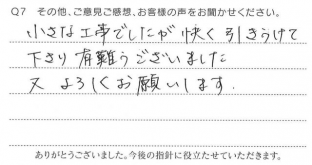 Q7 その他、ご意見ご感想、お客様の声をお聞かせください。
小さな工事でしたが快く引きうけて
下さり有難うございました
又よろしくお願いします.
ありがとうございました。今後の指針に役立たせていただきます。